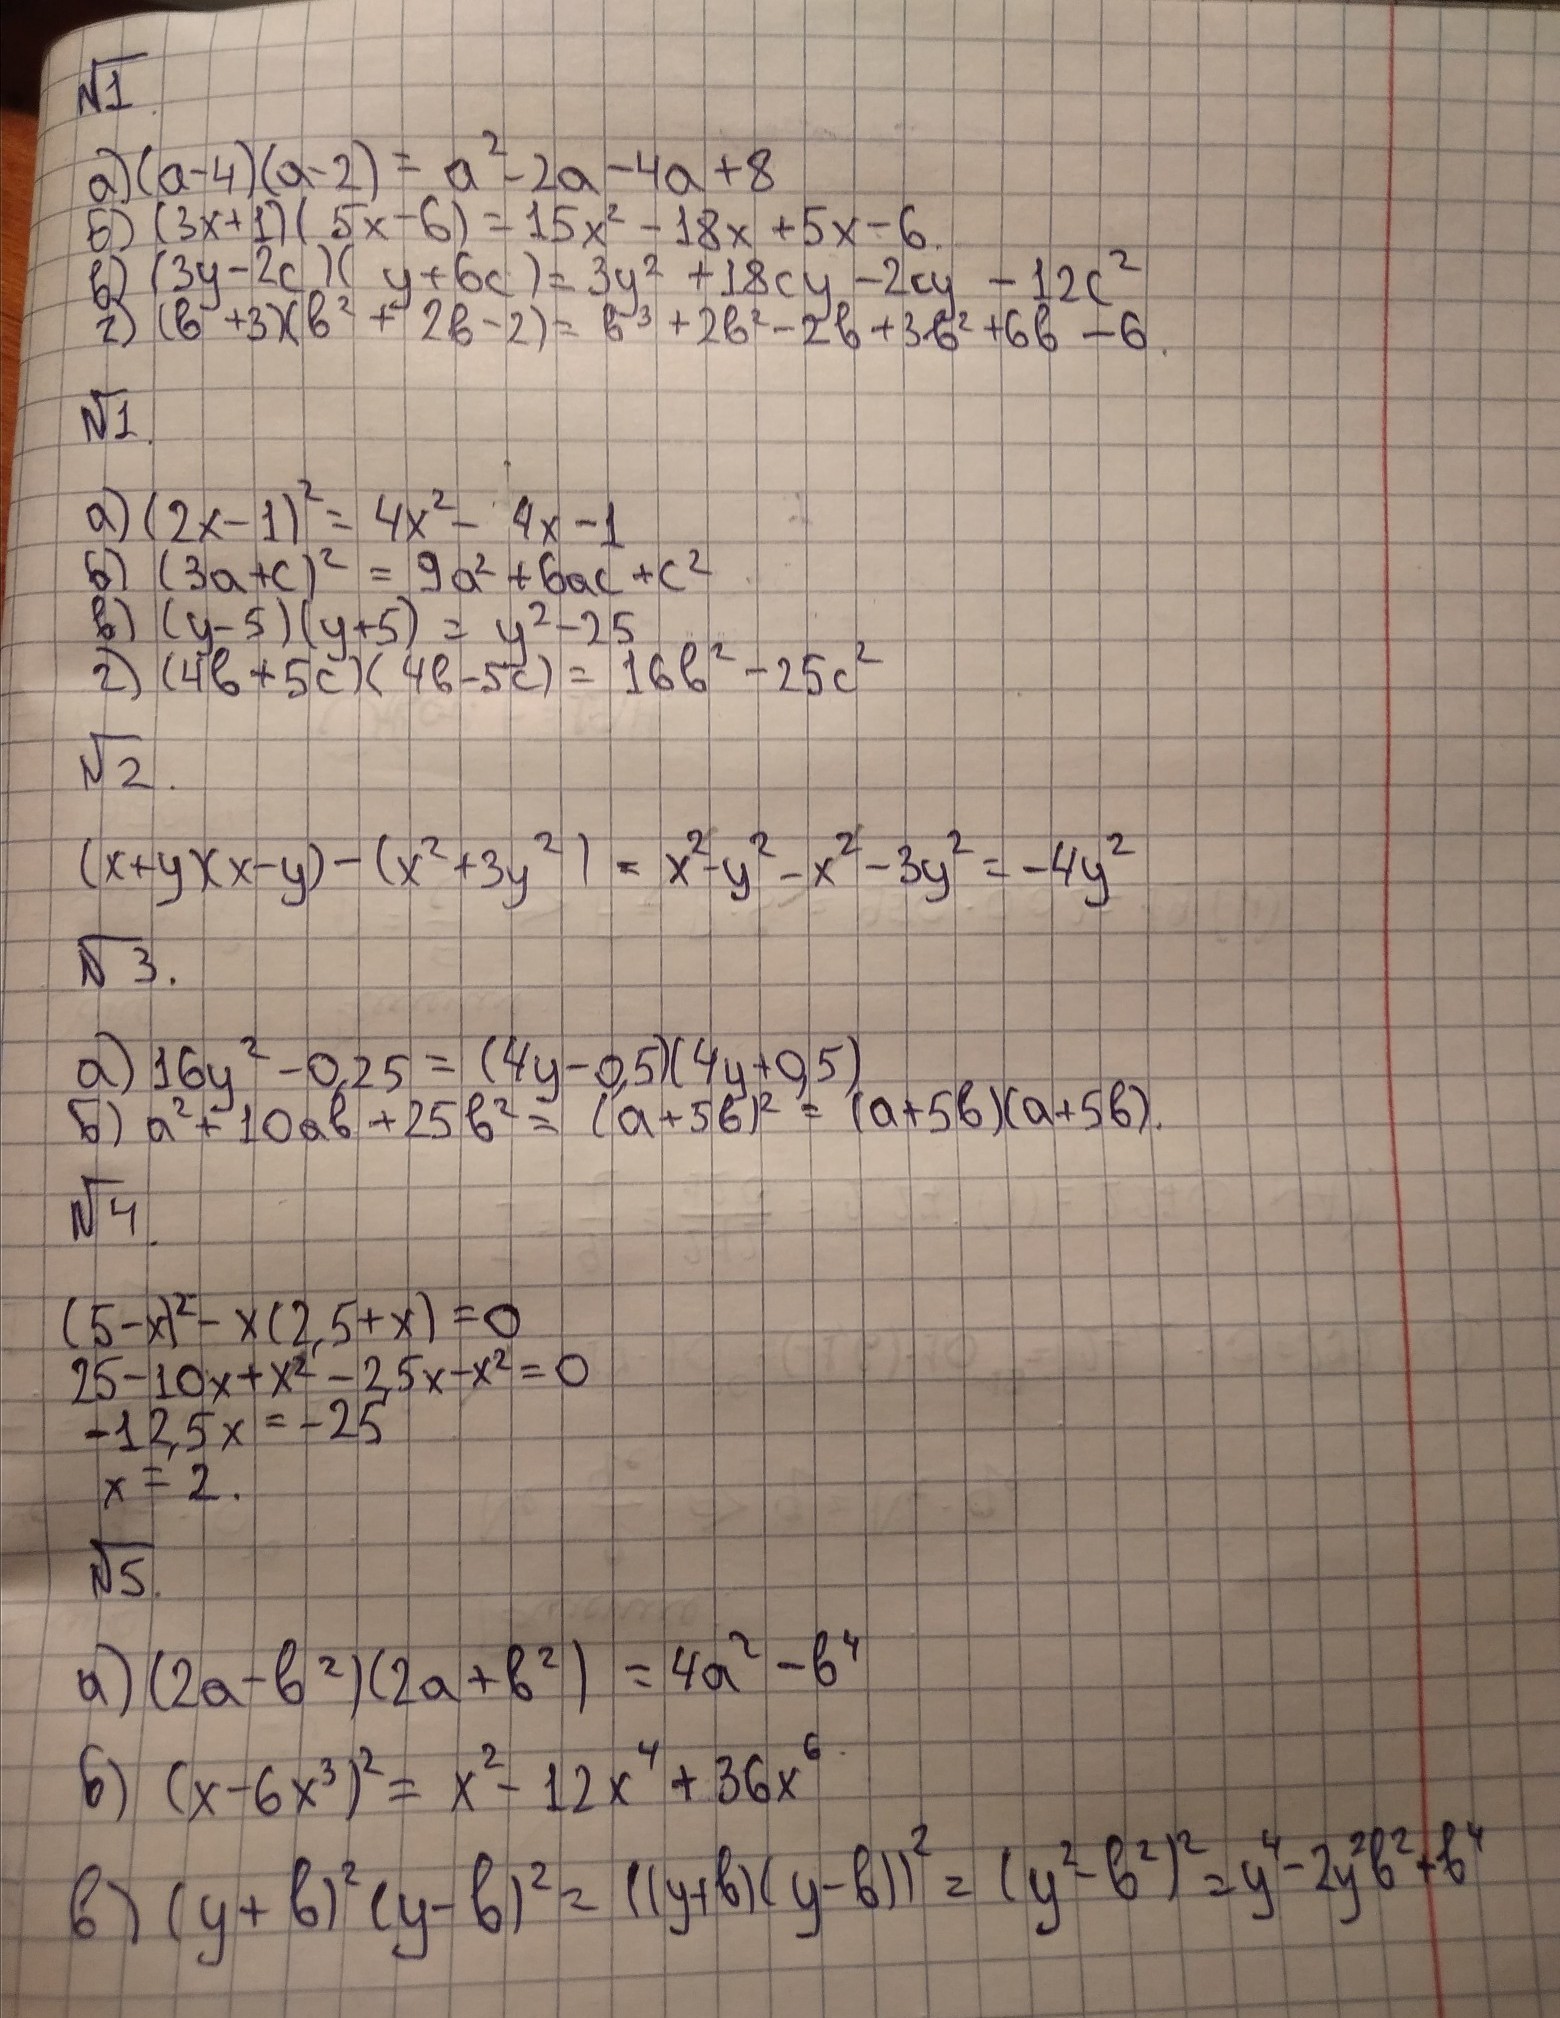 №1.
а) (a-4)(a-2) = a² - 2a - 4a + 8
б) (3x+1)(5x-6) = 15x² - 18x + 5x - 6.
в) (3y-2c)(y+6c) = 3y² + 18cy - 2cy - 12c²
г) (b+3)(b² + 2b - 2) = b³ + 2b² - 2b + 3b² + 6b - 6.
№1.
а) (2x-1)² = 4x² - 4x - 1
б) (3a+c)² = 9a² + 6ac + c²
в) (y-5)(y+5) = y² - 25
г) (4b+5c)(4b-5c) = 16b² - 25c²
№2.
(x+y)(x-y) - (x²+3y²) = x² - y² - x² - 3y² = -4y²
№3.
а) 16y² - 0,25 = (4y-0,5)(4y+0,5)
б) a² + 10ab + 25b² = (a+5b)² = (a+5b)(a+5b).
№4.
(5-x)² - x(2,5+x) = 0
25 - 10x + x² - 2,5x - x² = 0
-12,5x = -25
x = 2.
№5.
а) (2a-b²)(2a+b²) = 4a² - b⁴
б) (x-6x³)² = x² - 12x⁴ + 36x⁶
в) (y+b)²(y-b)² = ((y+b)(y-b))² = (y²-b²)² = y⁴ - 2y²b² + b⁴